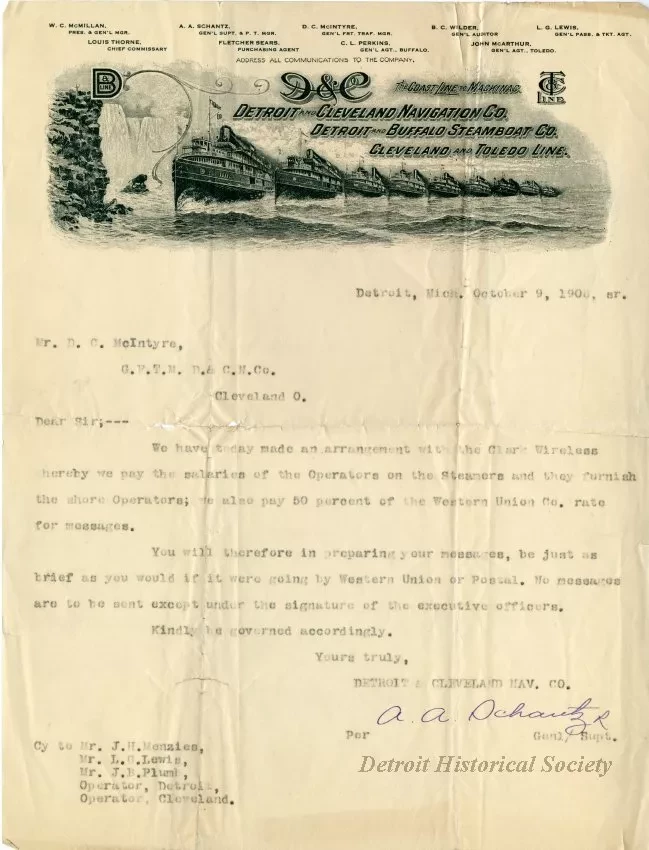 W. C. McMILLAN,
PRES. & GEN'L MGR.
A. A. SCHANTZ,
GEN'L SUPT. & P. T. MGR.
D. C. McINTYRE,
GEN'L FRT. TRAF. MGR.
B. C. WILDER,
GEN'L AUDITOR
L. G. LEWIS,
GEN'L PASS. & TKT. AGT.
LOUIS THORNE,
CHIEF COMMISSARY
FLETCHER SEARS,
PURCHASING AGENT
C. L. PERKINS,
GEN'L AGT., BUFFALO.
JOHN McARTHUR,
GEN'L AGT., TOLEDO.
ADDRESS ALL COMMUNICATIONS TO THE COMPANY.
D & B
LINE
D & C
THE COAST LINE TO MACKINAC.
C & T
LINE.
DETROIT AND CLEVELAND NAVIGATION CO.
DETROIT AND BUFFALO STEAMBOAT CO.
CLEVELAND AND TOLEDO LINE.
Detroit, Mich. October 9, 190 , ar.
Mr. D. C. McIntyre,
G.F.T.M. D.& C.N.Co.
Cleveland O.
Dear Sir;---
We have today made an arrangement with the Clark Wireless
whereby we pay the salaries of the Operators on the Steamers and they furnish
the shore Operators; we also pay 50 percent of the Western Union Co. rate
for messages.
You will therefore in preparing your messages, be just as
brief as you would if it were going by Western Union or Postal. No messages
are to be sent except under the signature of the executive officers.
Kindly be governed accordingly.
Yours truly,
DETROIT & CLEVELAND NAV. CO.
A. A. Schantz R
Per Genl, Supt.
Cy to Mr. J.H.Menzies,
Mr. L.G.Lewis,
Mr. J.B.Plumb,
Operator, Detroit,
Operator, Cleveland.
Detroit Historical Society